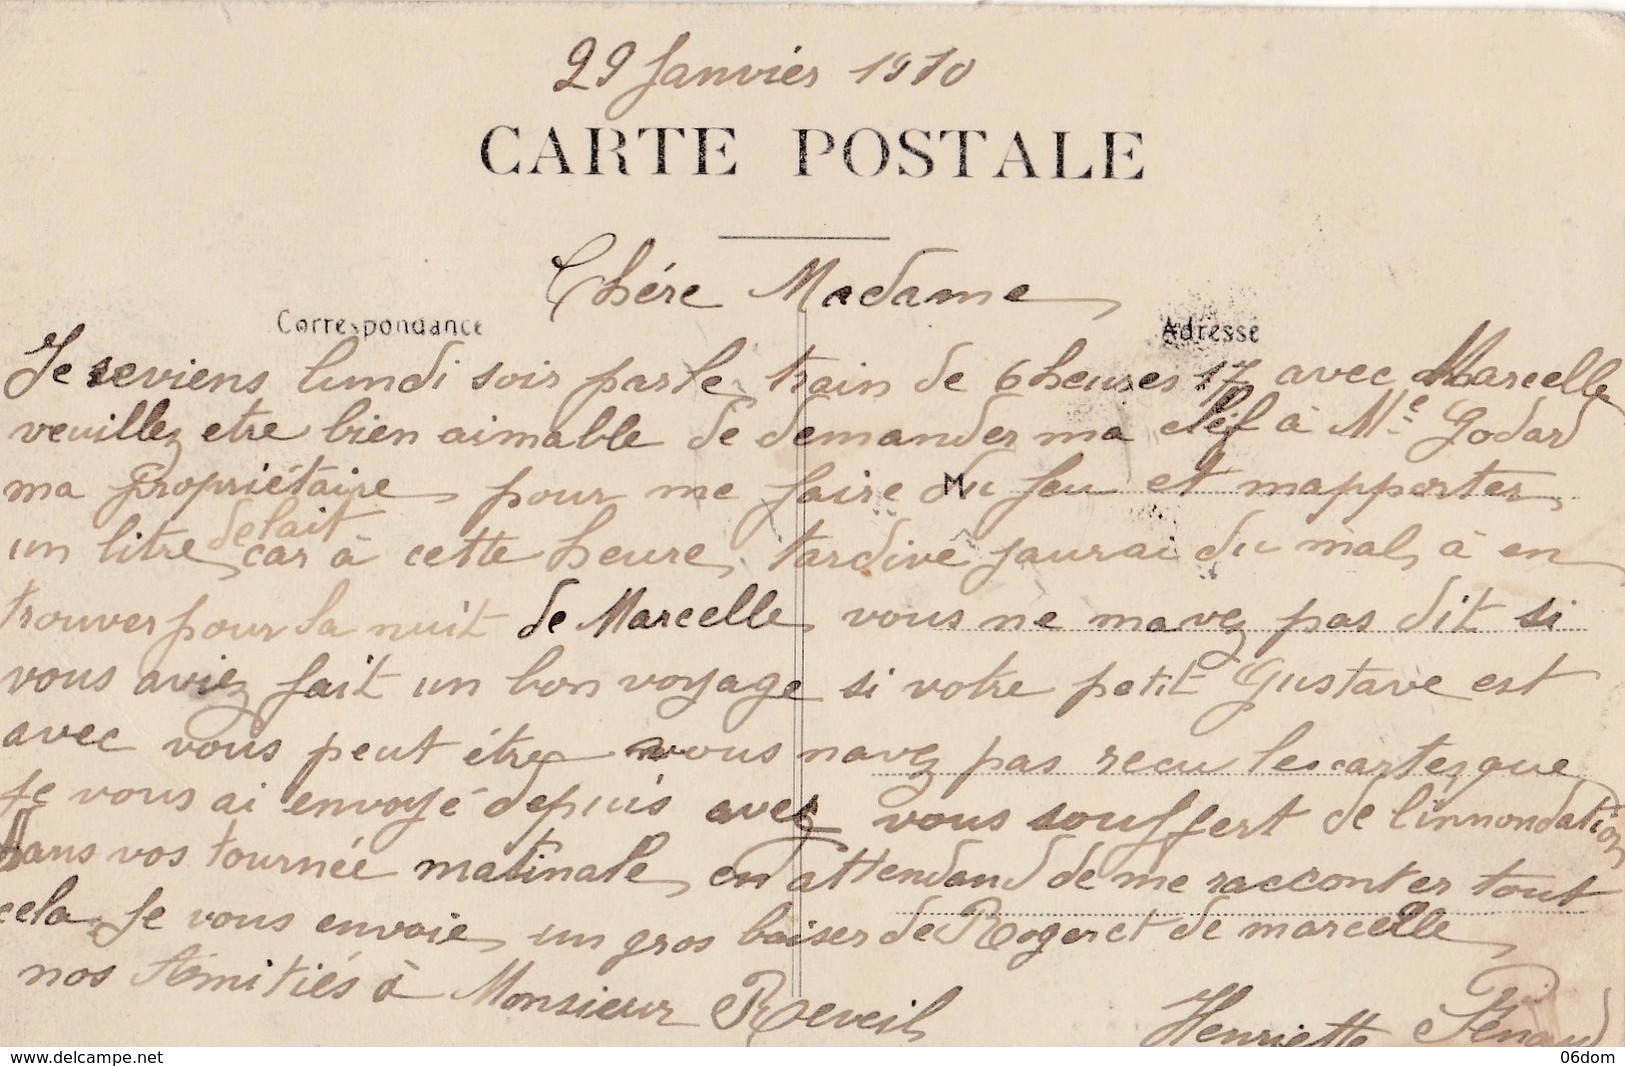 29 Janvier 1910
CARTE POSTALE
Chére Madame
Correspondance
Adresse
Je reviens lundi soir par le train de 6 heures 17 avec Marcelle
veuillez etre bien aimable de demander ma clef à Me Godard
ma propriétaire pour me faire du feu et mapporter
M
un litre de lait car à cette heure tardive jaurai du mal à en
trouver pour la nuit de Marcelle vous ne mavez pas dit si
vous aviez fait un bon voyage si votre petit Gustave est
avec vous peut étre vous navez pas recu les cartes que
je vous ai envoyé depuis avez vous souffert de l'innondation
dans vos tournée matinale en attendand de me racconter tout
cela Je vous envoie un gros baiser de Roger et de marcelle
nos Amitiés à Monsieur Reveil
Henriette
delcampe.net
06dom